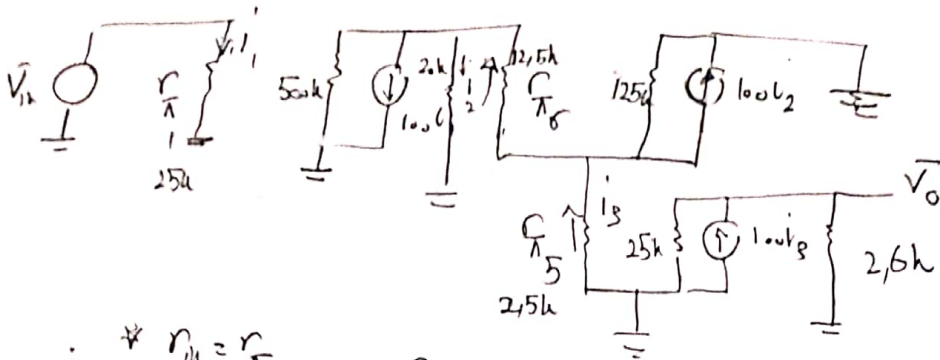 i
V̄in
rπ
1
25k
500k
100i
20k
i2
12,5k
rπ6
125k
100i2
V̄o
rπ
5
2,5k
i3
25k
100i3
2,6k
* rin = rπ